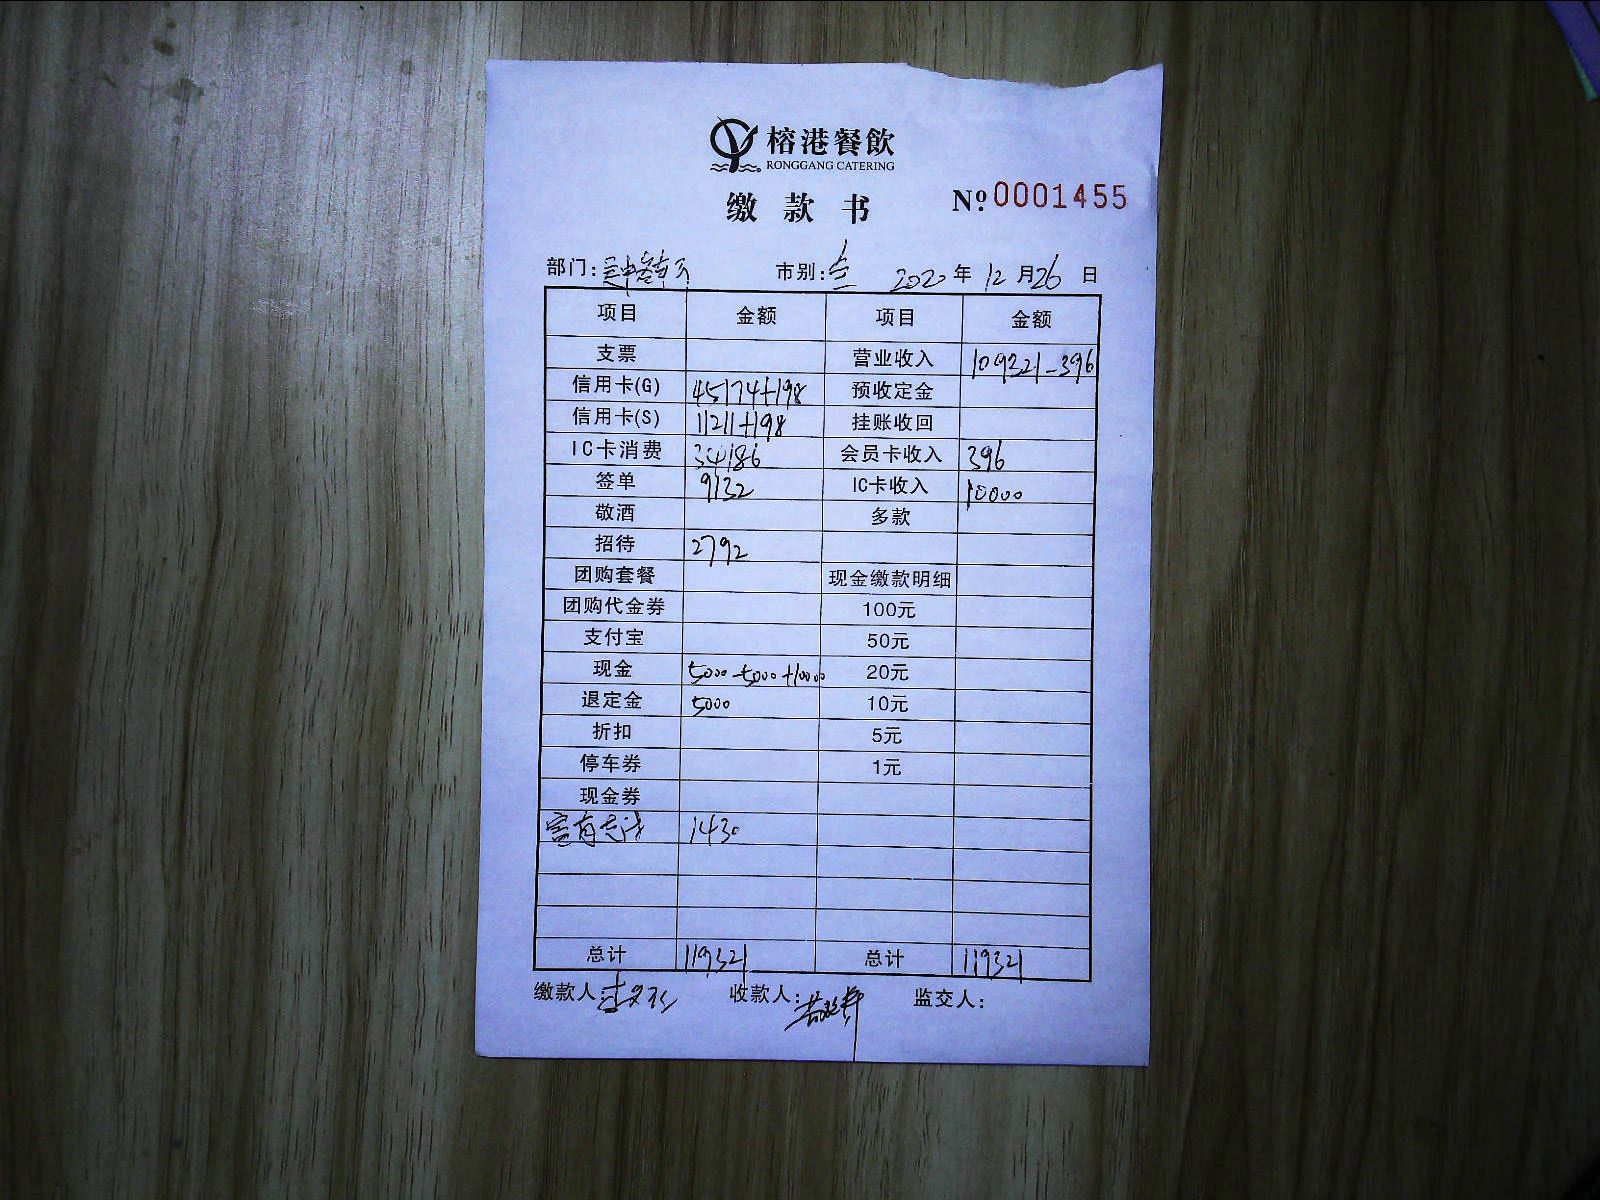 榕港餐飲
RONGGANG CATERING
缴款书 № 0001455
部门: 市别:全 2020年12月26日
项目 金额 项目 金额
支票 营业收入 109321-396
信用卡(G) 45174+198 预收定金
信用卡(S) 11211+198 挂账收回
IC卡消费 34186 会员卡收入 396
签单 9132 IC卡收入 10000
敬酒 多款
招待 2792
团购套餐 现金缴款明细
团购代金券 100元
支付宝 50元
现金 5000-5000+10000 20元
退定金 5000 10元
折扣 5元
停车券 1元
现金券
1430
总计 119321 总计 119321
缴款人: 收款人: 监交人: